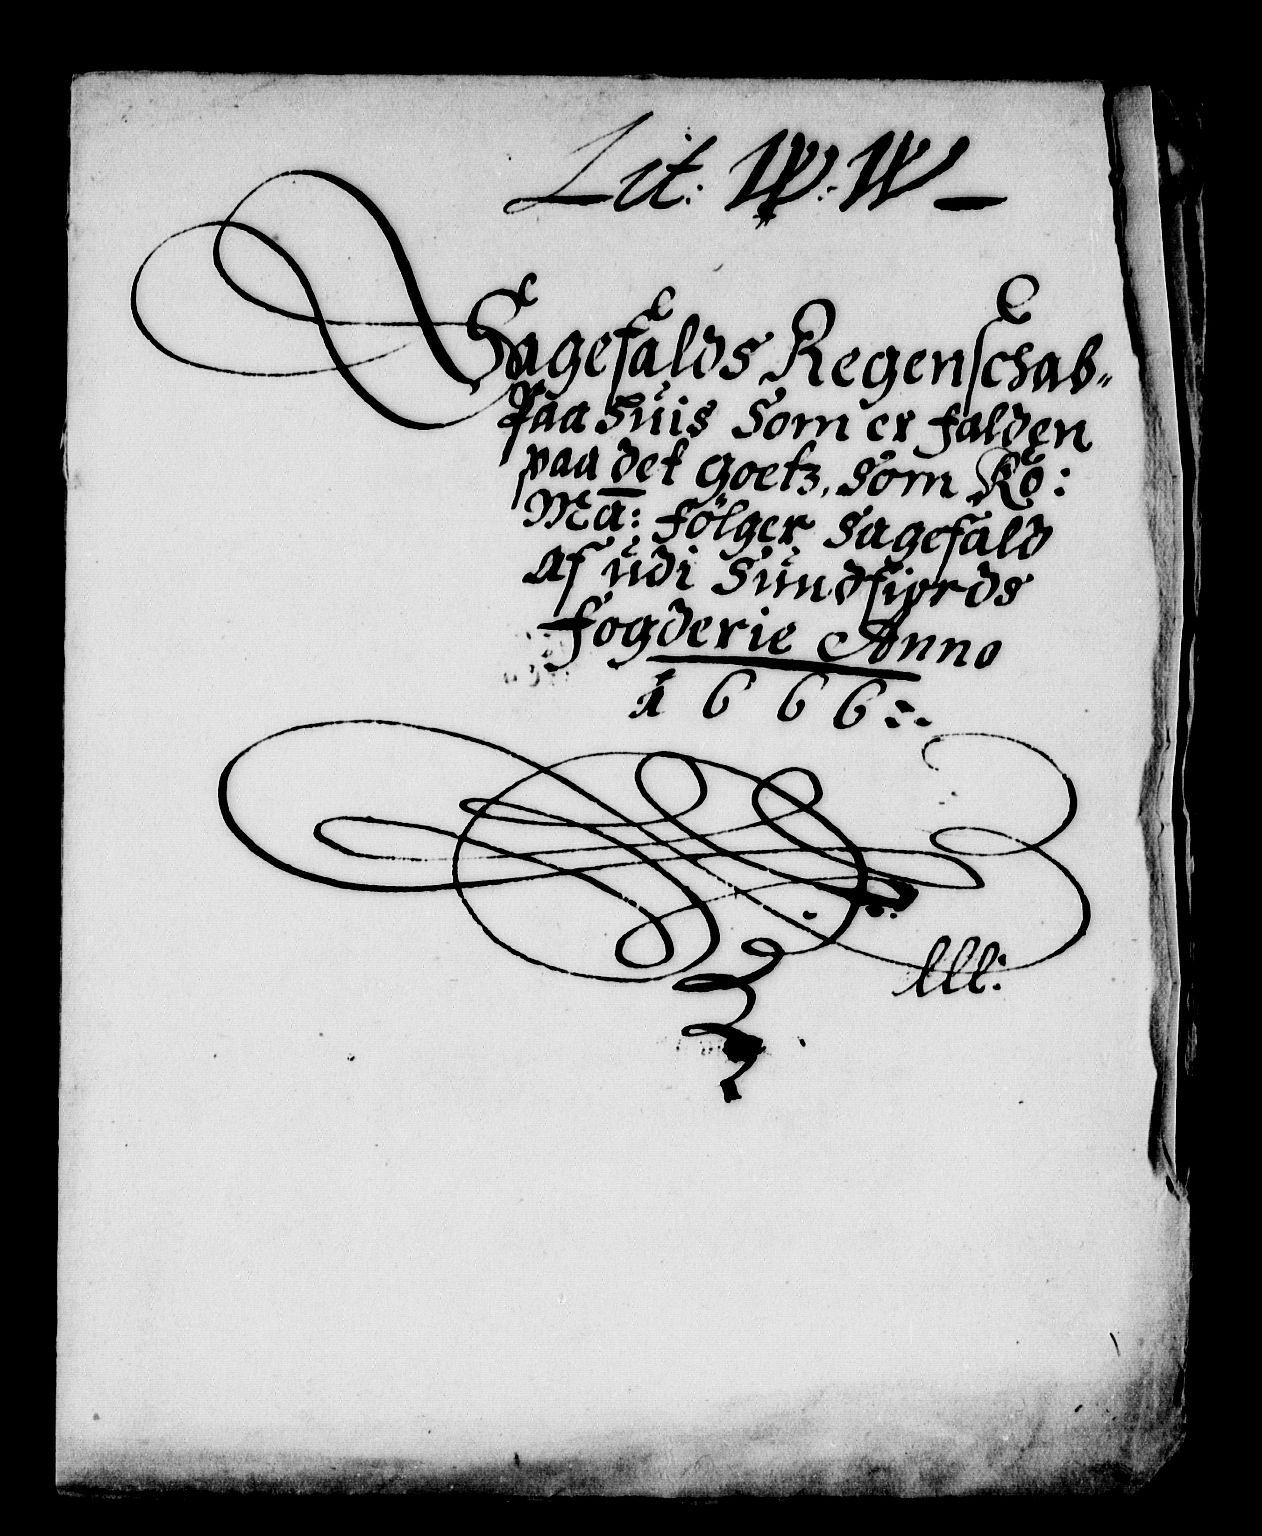 Lit: W: W
Sagefalds Regenschab
Paa Huis Som er falden
paa det goetz, Som Ko:
Ma: følger Sagefald
af udi Sundfiords
fogderie Anno
1666